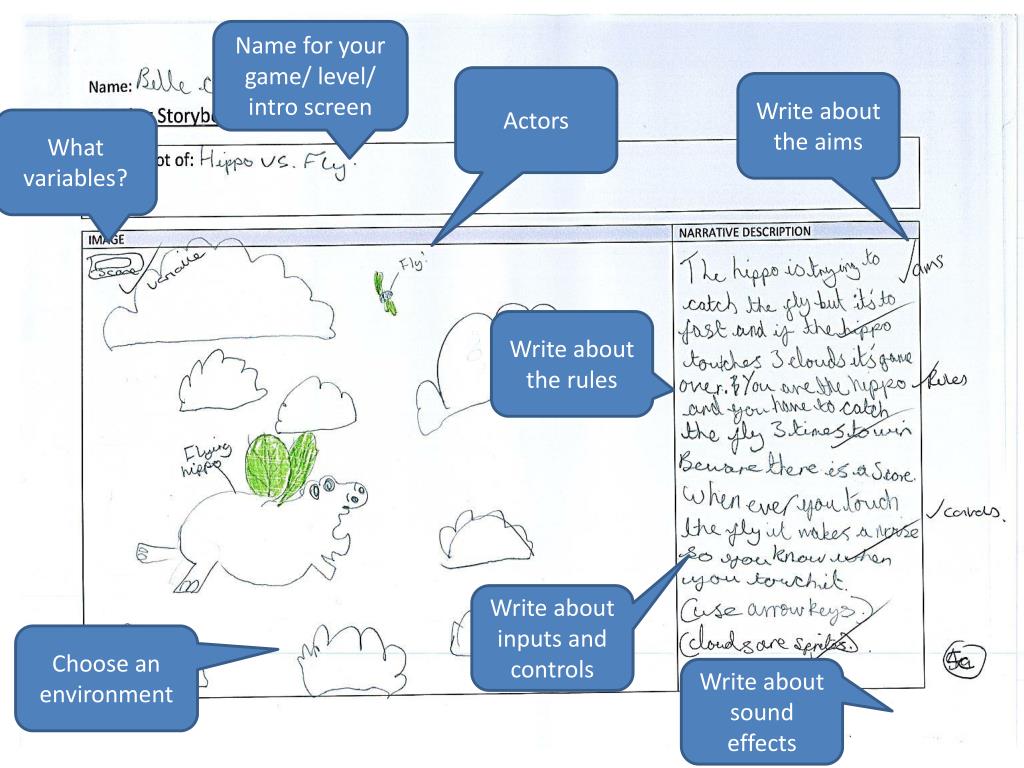 Name for your
game/ level/
intro screen
Name: Belle .C
Storybo
Actors
Write about
the aims
What
variables?
pt of: Hippo vs. Fly.
IMAGE
NARRATIVE DESCRIPTION
Score
variable
Fly!
The hippo is trying to
aims
catch the fly but it's to
fast and if the hippo
touches 3 clouds it's game
over. & You are the hippo
Rules
and you have to catch
the fly 3 times to win
Beware there is a score.
when ever you touch
the fly it makes a noise
controls.
so you know when
you touch it.
(use arrow keys.)
(clouds are sprites.)
Write about
the rules
Flying
hippo
Write about
inputs and
controls
Choose an
environment
Write about
sound
effects